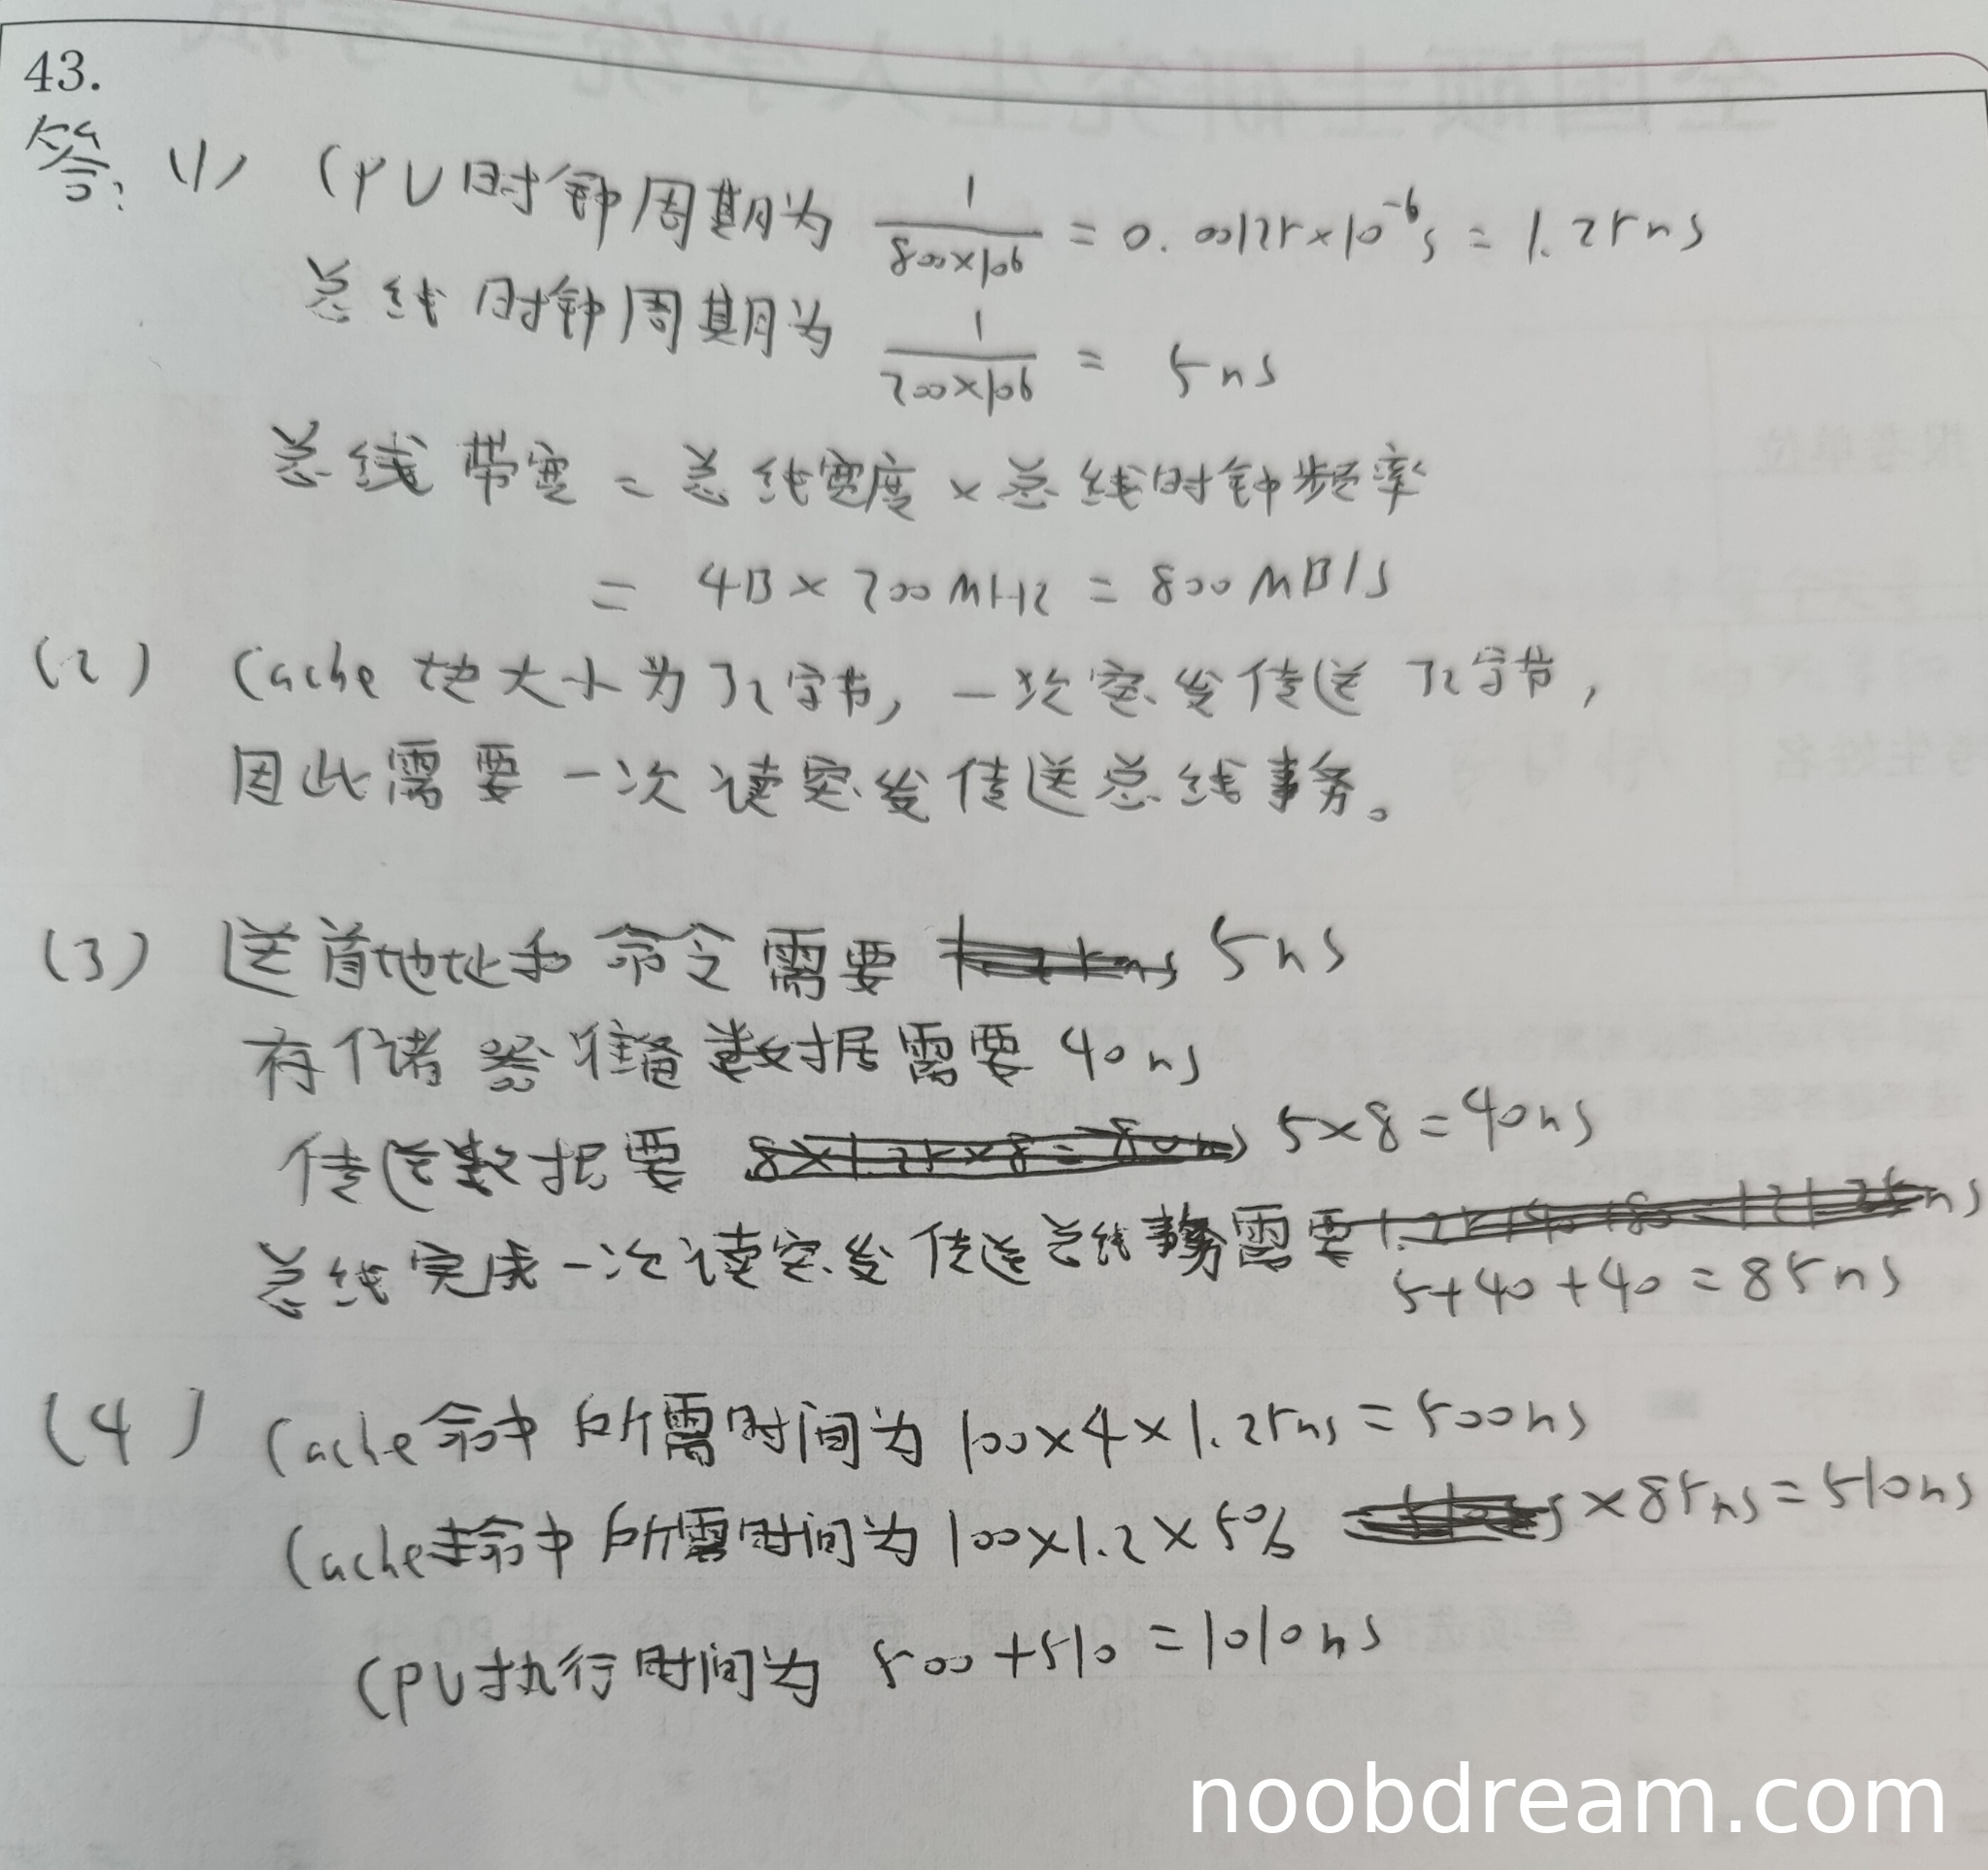 43.
答: (1) CPU时钟周期为 1/(800×10⁶) = 0.00125×10⁻⁶s = 1.25ns
总线时钟周期为 1/(200×10⁶) = 5ns
总线带宽 = 总线宽度 × 总线时钟频率
= 4B × 200MHz = 800MB/s
(2) Cache块大小为32字节, 一次突发传送32字节,
因此需要一次读突发传送总线事务。
(3) 送首地址和命令需要 5ns
存储器准备数据需要 40ns
传送数据要 5×8=40ns
总线完成一次读突发传送总线事务需要
5+40+40=85ns
(4) Cache命中所需时间为 100×4×1.25ns=500ns
Cache未命中所需时间为 100×1.2×5% ×85ns=510ns
CPU执行时间为 500+510=1010ns
noobdream.com